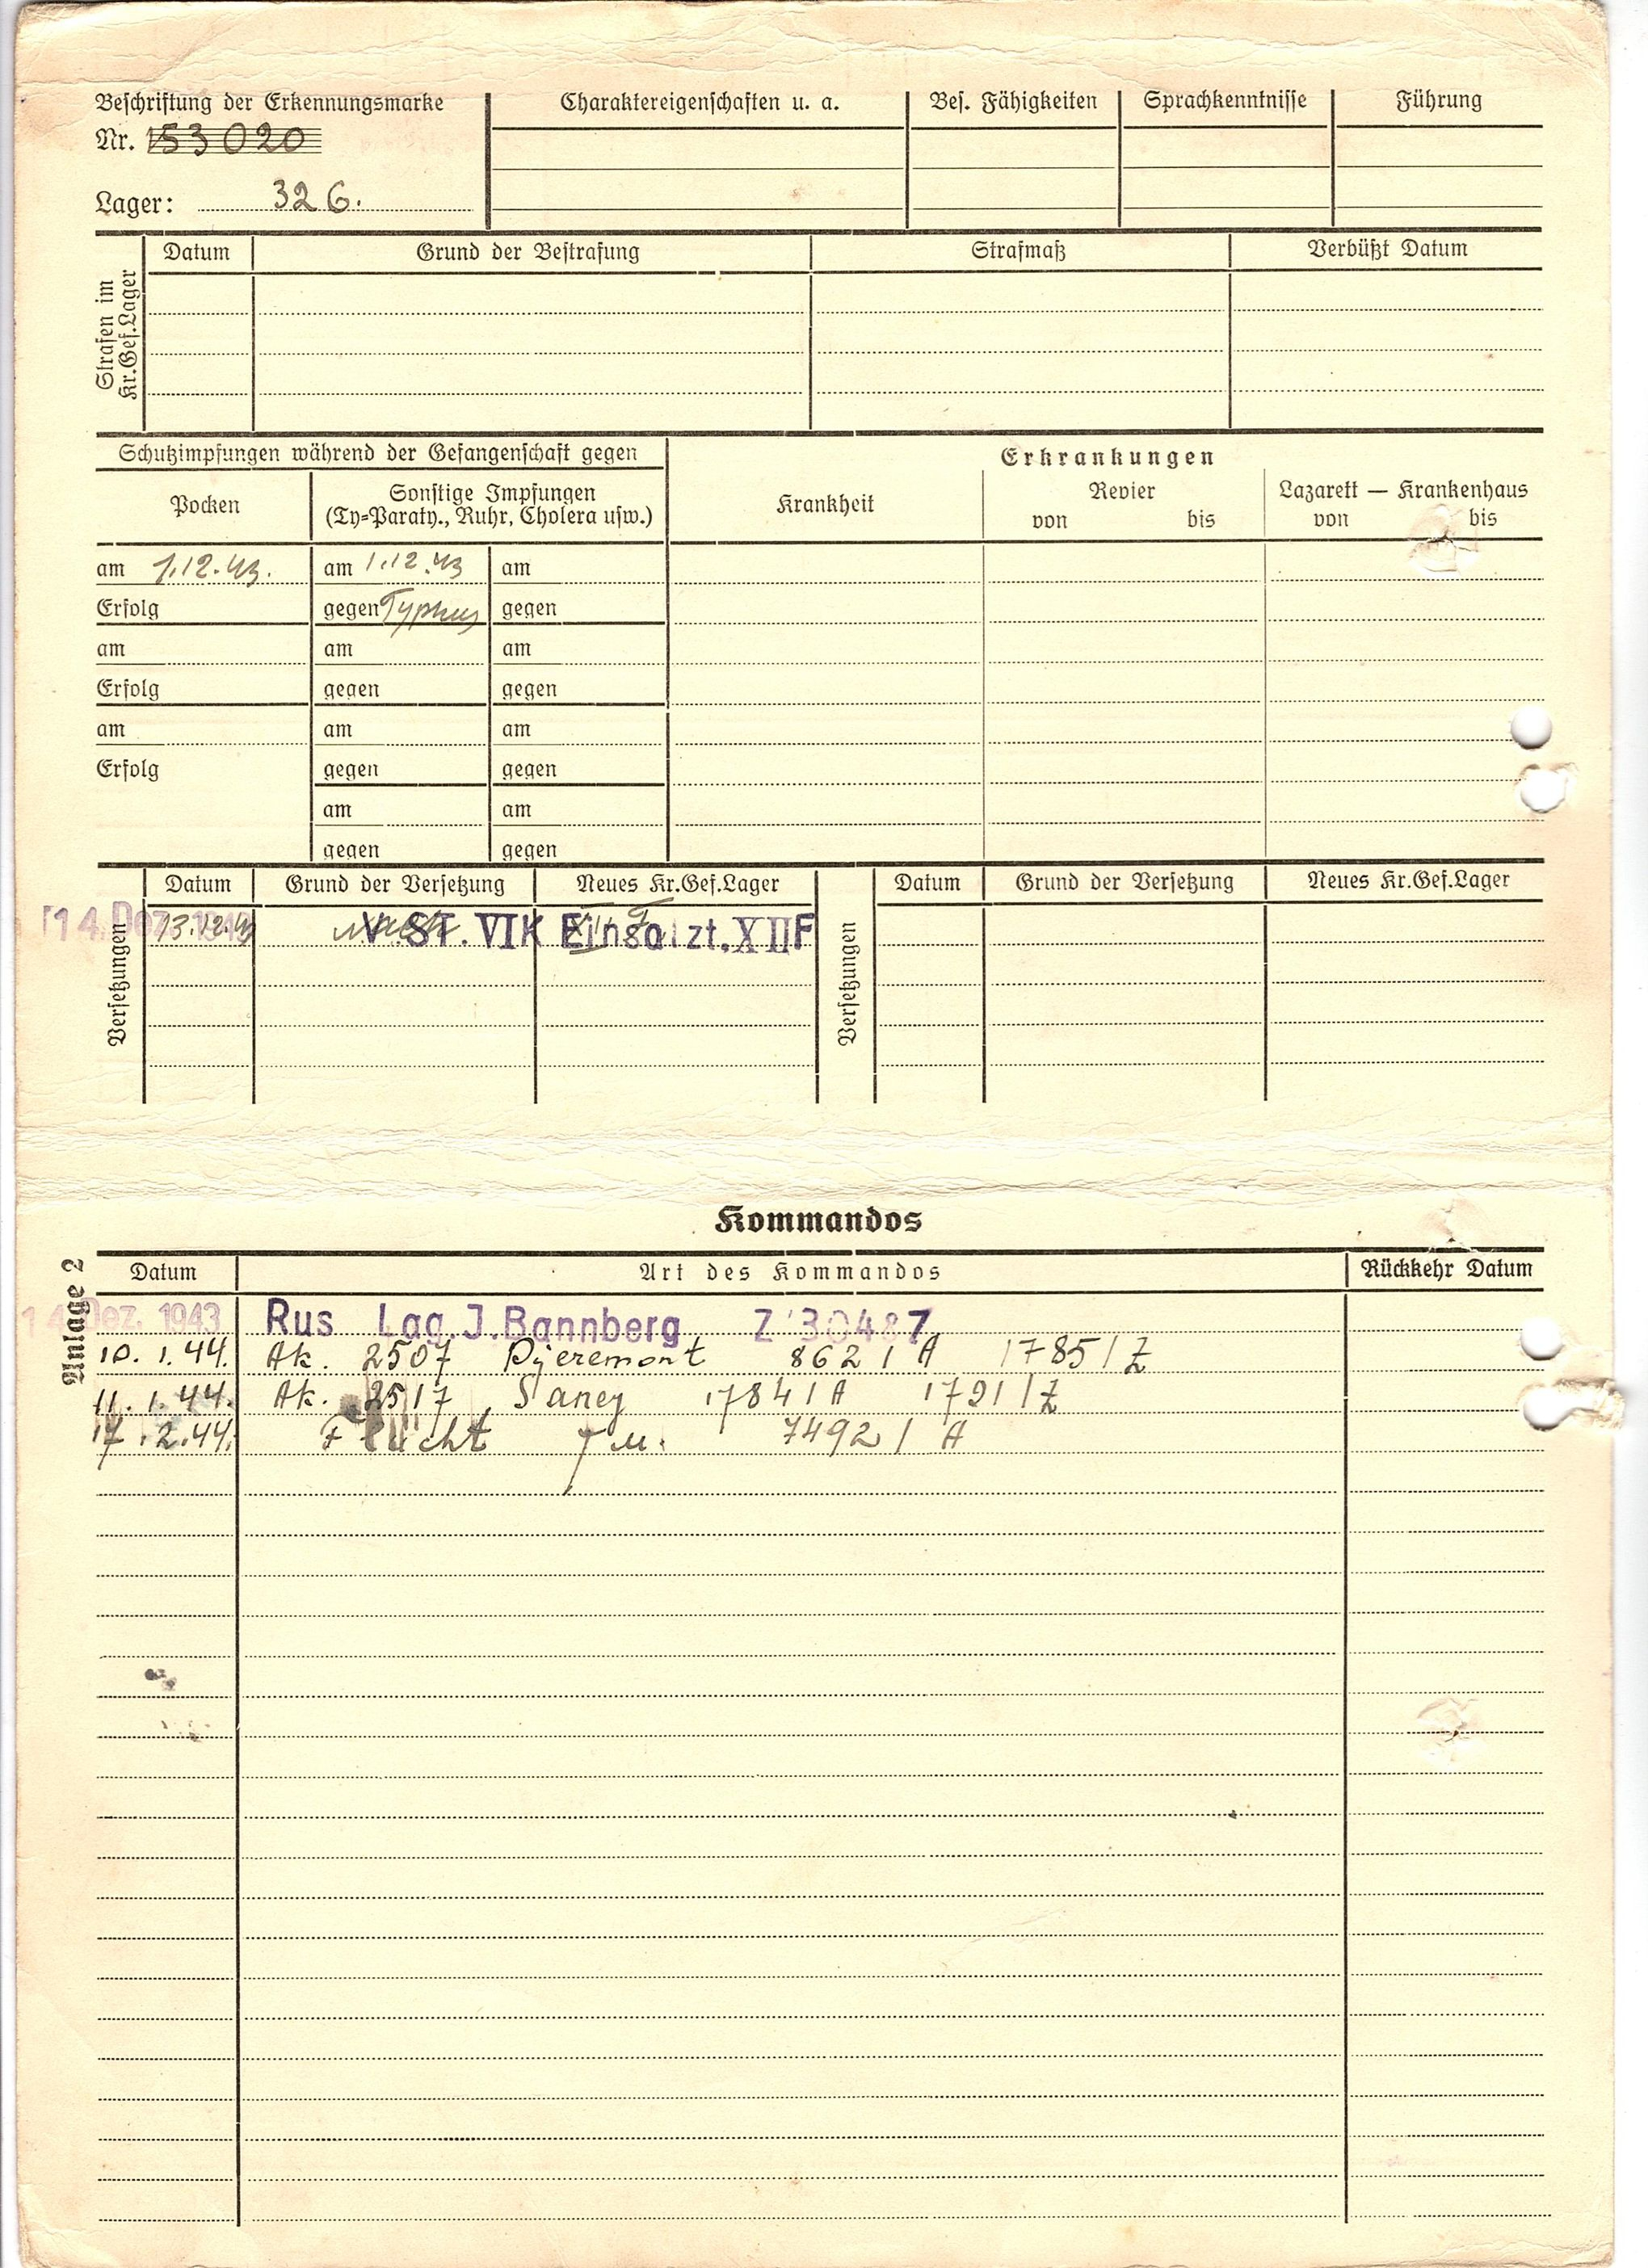 Beschriftung der Erkennungsmarke
Nr. 153020
Lager: 326.
Charaktereigenschaften u. a.
Bes. Fähigkeiten
Sprachkenntnisse
Führung
Strafen im
Kr.Gef.Lager
Datum
Grund der Bestrafung
Strafmaß
Verbüßt Datum
Schutzimpfungen während der Gefangenschaft gegen
Pocken
Sonstige Impfungen
(Ty=Paraty., Ruhr, Cholera usw.)
Erkrankungen
Krankheit
Revier
von bis
Lazarett — Krankenhaus
von bis
am 1.12.43. am 1.12.43 am
Erfolg gegen Typhus gegen
am am am
Erfolg gegen gegen
am am am
Erfolg gegen gegen
am am
gegen gegen
Versetzungen
Datum Grund der Versetzung Neues Kr.Gef.Lager
14. Dez. 1943 13.12.43 V. ST. VIK Einsatzt. XIIF
Versetzungen
Datum Grund der Versetzung Neues Kr.Gef.Lager
Kommandos
Einlage 2
Datum Art des Kommandos Rückkehr Datum
14 Dez. 1943 Rus Lag. J. Bannberg Z' 30487
10. 1. 44. Ak. 2507 Pjeremont 862 / A 1785 / Z
11. 1. 44. Ak. 2517 Saney 1784 / A 1791 / Z
17. 2. 44. Flucht 7492 / A